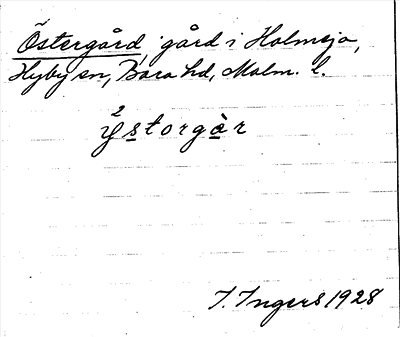 Östergård, gård i Holmeja,
Hyby sn, Bara hd, Malm. l.
2
ÿstorgàr
I. Ingers 1928